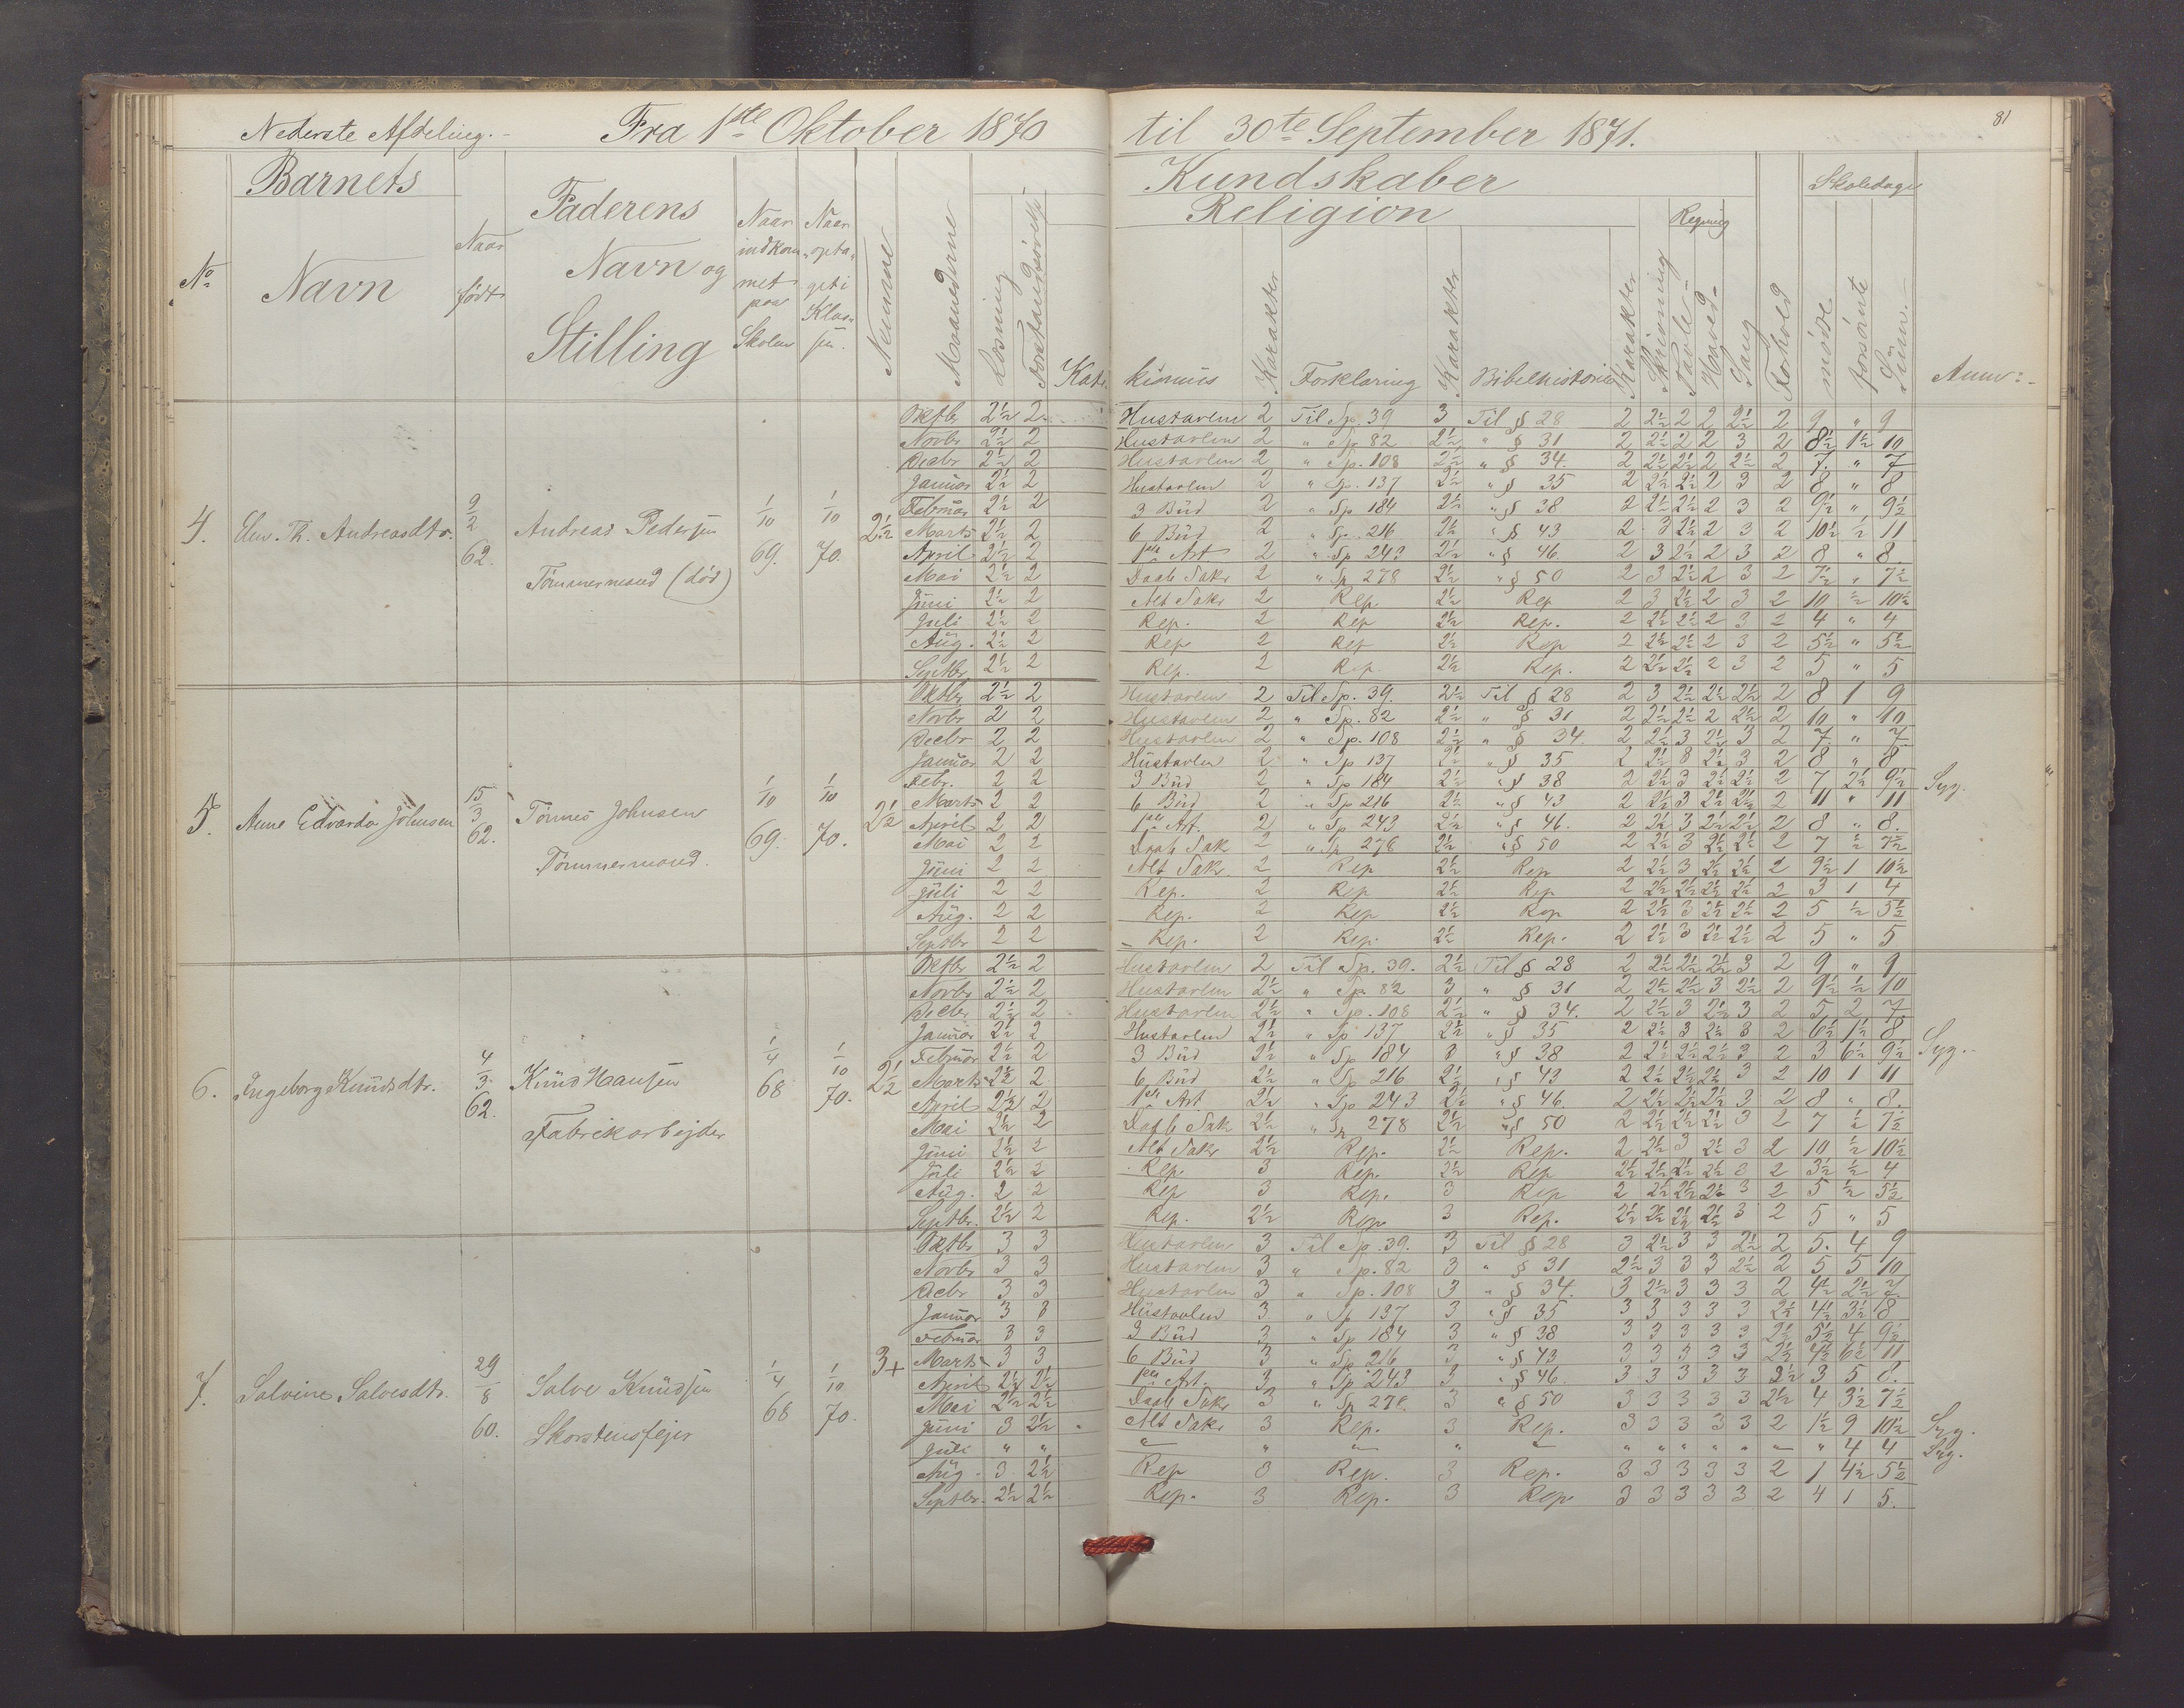 81
Nederste Afdeling. Fra 1ste Oktober 1870 til 30te September 1871.
Barnets Kundskaber Skoledage
Faderens Religion Regning
No Navn Naar født Navn og Stilling Naar indkommet paa Skolen Naar optaget i Klassen Numne Maanederne Læsning Forstandsøvelse Katekismus Karakter Forklaring Karakter Bibelhistorie Karakter Skrivning Tavle- Hoved- Sang Forhold møde forsømte Sum Anm:
4. Andreasdtr. 9/2 62. Andreas Pedersen Tømmermand (død) 1/10 69. 1/10 70. 2½
Oktbr 2½ 2 Hustavlen 2 Til Sp. 39 3 Til § 28 2 2½ 2 2 2½ 2 9 " 9
Novbr 2½ 2 Hustavlen 2 " Sp. 82 2½ " § 31 2 2½ 2 2 3 2 8½ 1½ 10
Decbr 2½ 2 Hustavlen 2 " Sp. 108 2½ " § 34. 2 2½ 2½ 2 2½ 2 7. " 7
Januar 2½ 2 Hustavlen 2 " Sp. 137 2½ " § 35 2 2½ 2½ 2 3 2 8 " 8
Februar 2½ 2 3 Bud 2 " Sp 184 2½ " § 38 2 2½ 2½ 2 3 2 9½ " 9½
Marts 2½ 2 6 Bud 2 " Sp. 216 2½ " § 43 2 3 2½ 2 3 2 10½ ½ 11
April 2½ 2 1ste Art. 2 " Sp 243 2½ " § 46 2 3 2½ 2 3 2 8 " 8
Mai 2½ 2 Daab Sakr 2 " Sp 278 2½ " § 50 2 3 2½ 2 3 2 7½ " 7½
Juni 2½ 2 Alt Sakr 2 Rep. 2½ Rep 2 3 2½ 2 3 2 10 ½ 10½
Juli 2½ 2 Rep. 2 Rep 2½ Rep. 2 2½ 2½ 2 3 2 4 " 4
Aug. 2½ 2 Rep 2 Rep 2½ Rep 2 2½ 2½ 2 3 2 5½ " 5½
Septbr 2½ 2 Rep. 2 Rep. 2½ Rep. 2 2½ 2½ 2 3 2 5 " 5
5. Anne Edvarda Johnsen 15/3 62. Tønnes Johnsen Tømmermand. 1/10 69. 1/10 70. 2½
Oktbr 2½ 2 Hustavlen 2 Til Sp. 39. 2½ Til § 28 2 3 2½ 2½ 2½ 2 8 1 9
Novbr 2 2 Hustavlen 2 " Sp. 82 2½ " § 31 2 2½ 2½ 2 2½ 2 10 " 10
Decbr 2 2 Hustavlen 2 " Sp. 108 2½ " § 34. 2 2½ 3 2½ 3 2 7. " 7
Januar 2 2 Hustavlen 2 " Sp 137 2½ " § 35 2 2½ 3 2½ 3 2 8 " 8
Febr. 2 2 3 Bud 2 " Sp 184 2½ " § 38 2 2½ 3 2½ 2½ 2 7 2½ 9½ Syg.
Marts 2 2 6 Bud 2 " Sp 216 2½ " § 43 2 2½ 3 2½ 2½ 2 11 " 11
April 2 2 1ste Art. 2 " Sp 243 2½ " § 46. 2 2½ 3 2½ 2½ 2 8 " 8.
Mai 2 2 Daab Sak 2 " Sp 278 2½ " § 50 2 2½ 3 2½ 2½ 2 7 ½ 7½
Juni 2 2 Alt Sak. 2 Rep 2½ Rep 2 2½ 3 2½ 2½ 2 9½ 1 10½
Juli 2 2 Rep. 2 Rep 2½ Rep 2 2½ 2½ 2½ 2½ 2 3 1 4
Aug. 2 2 Rep. 2 Rep 2½ Rep 2 2½ 3 2½ 2½ 2 5 ½ 5½
Septbr 2 2 Rep. 2 Rep. 2½ Rep. 2 2½ 3 2½ 2½ 2 5 " 5
6. Ingeborg Knudsdtr. 4/3 62. Knud Hansen Fabrikarbejder 1/4 68 1/10 70. 2½
Oktbr 2½ 2 Hustavlen 2 Til Sp. 39. 2½ Til § 28 2 2½ 2½ 2½ 3 2 9 " 9
Novbr 2½ 2 Hustavlen 2½ " Sp. 82 3 " § 31 2 2½ 2½ 3 2½ 2 9½ ½ 10
Decbr 2½ 2 Hustavlen 2½ " Sp. 108 2½ " § 34. 2 2½ 3 2½ 3 2 5 2 7
Januar 2½ 2 Hustavlen 2½ " Sp 137 2½ " § 35 2 2½ 3 2½ 3 2 6½ 1½ 8
Februar 2½ 2 3 Bud 2½ " Sp 184 3 " § 38 2 2½ 2½ 2½ 3 2 3 6½ 9½ Syg.
Marts 2½ 2 6 Bud 2½ " Sp 216 2½ " § 43 2 2½ 2½ 2½ 3 2 10 1 11
April 2½ 2 1ste Art. 2½ " Sp 243 2½ " § 46. 2 2½ 2½ 2½ 3 2 8 " 8.
Mai 2½ 2 Daab Sak 2½ " Sp 278 2½ " § 50 2 2½ 2½ 2½ 3 2 7 ½ 7½
Juni 2½ 2 Alt Sakr 2½ Rep. 2½ Rep. 2 2½ 3 2½ 3 2 10 ½ 10½
Juli 2½ 2 Rep. 3 Rep. 2½ Rep 2½ 2½ 2½ 2½ 3 2 3½ ½ 4
Aug. 2 2 Rep 3 Rep. 3 Rep 2 2½ 2½ 2½ 3 2 5 ½ 5½
Septbr. 2½ 2 Rep. 2½ Rep 3 Rep. 2½ 2½ 2½ 2½ 3 2 5 " 5
7. Salvine Salvesdtr. 29/8 60. Salve Knudsen Skorstensfejer 1/4 68 1/10 70. 3+
Oktbr 3 3 Hustavlen 3 Til Sp. 39. 3 Til § 28 3 2½ 3 3 2½ 2 5. 4 9
Novbr 3 3 Hustavlen 3 " Sp. 82 3 " § 31 2½ 3 3 3 2½ 2 5 5 10
Decbr 3 3 Hustavlen 3 " Sp. 108 3 " § 34. 3 2½ 3 3 3 2 4½ 2½ 7.
Januar 3 3 Hustavlen 3 " Sp 137 3 " § 35 3 3 3 3 3 2½ 4½ 3½ 8
Februar 3 3 3 Bud 3 " Sp 184 3 " § 38 3 3 3 3 3 2½ 5½ 4 9½
Marts 3 3 6 Bud 3 " Sp 216 3 " § 43 3 3 3 3 3 2½ 4½ 6½ 11
April 2½ 2½ 1ste Art. 3 " Sp 243 3 " § 46. 3 3 3 3 3 2½ 3 5 8.
Mai 2½ 2½ Daab Sakr 3 " Sp 278 3 " § 50 3 3 3 3 3 2½ 4 3½ 7½
Juni 3 2½ Alt Sakr 3 Rep. 3 Rep. 3 3 3 3 3 2 1½ 9 10½ Syg.
Juli " " " " " " " " " " " " " " 4 4 Syg.
Aug. 3 2½ Rep 3 Rep. 3 Rep. 3 3 3 3 3 2 1 4½ 5½
Septbr. 2½ 2½ Rep. 3 Rep. 3 Rep 3 3 3 3 3 2 4 1 5.